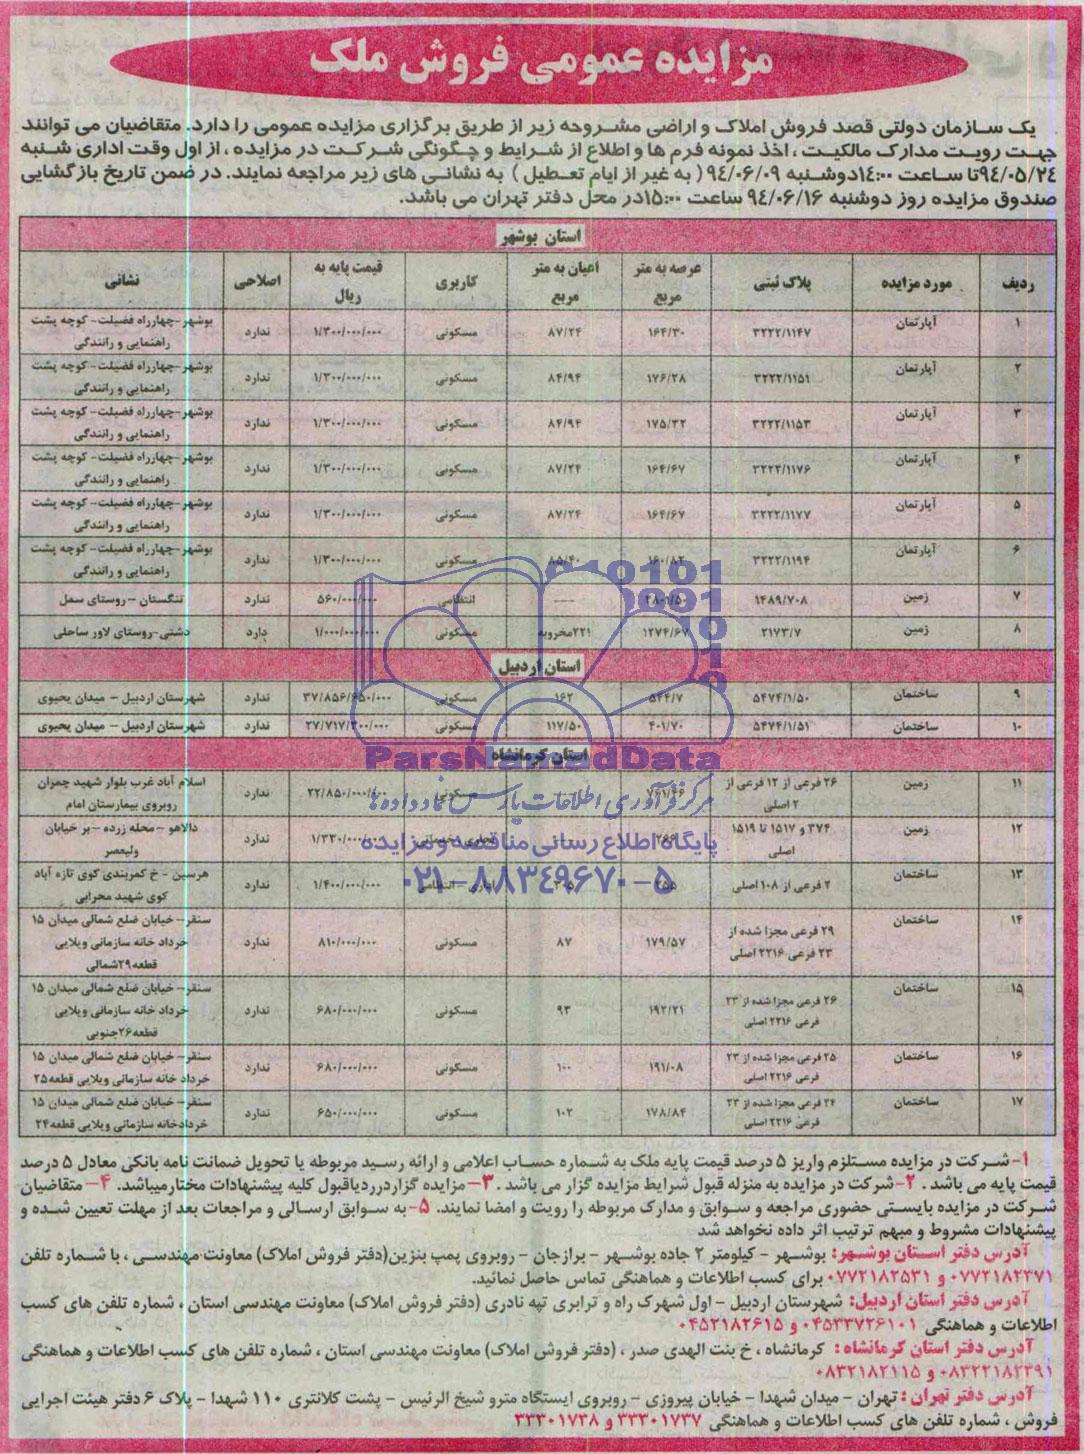 مزایده عمومی فروش ملک
یک سازمان دولتی قصد فروش املاک و اراضی مشروحه زیر از طریق برگزاری مزایده عمومی را دارد. متقاضیان می توانند
جهت رویت مدارک مالکیت، اخذ نمونه فرم ها و اطلاع از شرایط و چگونگی شرکت در مزایده، از اول وقت اداری شنبه
۹۴/۰۵/۲۴ تا ساعت ۱۴:۰۰ دوشنبه ۹۴/۰۶/۰۹ (به غیر از ایام تعطیل) به نشانی های زیر مراجعه نمایند. در ضمن تاریخ بازگشایی
صندوق مزایده روز دوشنبه ۹۴/۰۶/۱۶ ساعت ۱۵:۰۰ در محل دفتر تهران می باشد.
استان بوشهر
ردیف مورد مزایده پلاک ثبتی عرصه به متر مربع اعیان به متر مربع کاربری قیمت پایه به ریال اصلاحی نشانی
۱ آپارتمان ۳۲۲۲/۱۱۴۷ ۱۶۴/۳۰ ۸۷/۲۴ مسکونی ۱/۳۰۰/۰۰۰/۰۰۰ ندارد بوشهر-چهارراه فضیلت- کوچه پشت راهنمایی و رانندگی
۲ آپارتمان ۳۲۲۲/۱۱۵۱ ۱۷۶/۲۸ ۸۴/۹۴ مسکونی ۱/۳۰۰/۰۰۰/۰۰۰ ندارد بوشهر-چهارراه فضیلت- کوچه پشت راهنمایی و رانندگی
۳ آپارتمان ۳۲۲۲/۱۱۵۳ ۱۷۵/۳۲ ۸۴/۹۴ مسکونی ۱/۳۰۰/۰۰۰/۰۰۰ ندارد بوشهر-چهارراه فضیلت- کوچه پشت راهنمایی و رانندگی
۴ آپارتمان ۳۲۲۲/۱۱۷۶ ۱۶۴/۶۷ ۸۷/۲۴ مسکونی ۱/۳۰۰/۰۰۰/۰۰۰ ندارد بوشهر-چهارراه فضیلت- کوچه پشت راهنمایی و رانندگی
۵ آپارتمان ۳۲۲۲/۱۱۷۷ ۱۶۴/۶۷ ۸۷/۲۴ مسکونی ۱/۳۰۰/۰۰۰/۰۰۰ ندارد بوشهر-چهارراه فضیلت- کوچه پشت راهنمایی و رانندگی
۶ آپارتمان ۳۲۲۲/۱۱۹۴ ۱۶۰/۸۲ ۸۵/۴۰ مسکونی ۱/۳۰۰/۰۰۰/۰۰۰ ندارد بوشهر-چهارراه فضیلت- کوچه پشت راهنمایی و رانندگی
۷ زمین ۱۴۸۹/۷۰۸ ۲۸۰۱/۵۰ ---- انتظامی ۵۶۰/۰۰۰/۰۰۰ ندارد تنگستان - روستای سمل
۸ زمین ۲۱۷۳/۷ ۱۲۷۴/۶۷ ۲۲۱مخروبه مسکونی ۱/۰۰۰/۰۰۰/۰۰۰ دارد دشتی-روستای لاور ساحلی
استان اردبیل
۹ ساختمان ۵۴۷۴/۱/۵۰ ۵۴۴/۷ ۱۶۲ مسکونی ۳۷/۸۵۶/۶۵۰/۰۰۰ ندارد شهرستان اردبیل - میدان یحیوی
۱۰ ساختمان ۵۴۷۴/۱/۵۱ ۴۰۱/۷۰ ۱۱۷/۵۰ مسکونی ۲۷/۷۱۷/۳۰۰/۰۰۰ ندارد شهرستان اردبیل - میدان یحیوی
استان کرمانشاه
۱۱ زمین ۲۶ فرعی از ۱۲ فرعی از ۲ اصلی ۷۶۱/۴۶ مسکونی ۲۲/۸۵۰/۰۰۰/۰۰۰ ندارد اسلام آباد غرب بلوار شهید چمران روبروی بیمارستان امام
۱۲ زمین ۳۷۴ و ۱۵۱۷ تا ۱۵۱۹ اصلی ۱/۳۳۰/۰۰۰/۰۰۰ ندارد دالاهو - محله زرده - بر خیابان ولیعصر
۱۳ ساختمان ۲ فرعی از ۱۰۸ اصلی ۲۵۵ انتظامی ۱/۴۰۰/۰۰۰/۰۰۰ ندارد هرسین - خ کمربندی کوی تازه آباد کوی شهید محرابی
۱۴ ساختمان ۲۹ فرعی مجزا شده از ۲۳ فرعی ۲۲۱۶ اصلی ۱۷۹/۵۷ ۸۷ مسکونی ۸۱۰/۰۰۰/۰۰۰ ندارد سنقر- خیابان ضلع شمالی میدان ۱۵ خرداد خانه سازمانی ویلایی قطعه۲۹شمالی
۱۵ ساختمان ۲۶ فرعی مجزا شده از ۲۳ فرعی ۲۲۱۶ اصلی ۱۹۲/۲۱ ۹۳ مسکونی ۶۸۰/۰۰۰/۰۰۰ ندارد سنقر- خیابان ضلع شمالی میدان ۱۵ خرداد خانه سازمانی ویلایی قطعه۲۶جنوبی
۱۶ ساختمان ۲۵ فرعی مجزا شده از ۲۳ فرعی ۲۲۱۶ اصلی ۱۹۱/۰۸ ۱۰۰ مسکونی ۶۸۰/۰۰۰/۰۰۰ ندارد سنقر- خیابان ضلع شمالی میدان ۱۵ خرداد خانه سازمانی ویلایی قطعه۲۵
۱۷ ساختمان ۲۴ فرعی مجزا شده از ۲۳ فرعی ۲۲۱۶ اصلی ۱۷۸/۸۴ ۱۰۲ مسکونی ۶۵۰/۰۰۰/۰۰۰ ندارد سنقر- خیابان ضلع شمالی میدان ۱۵ خردادخانه سازمانی ویلایی قطعه۲۴
ParsNamadData
مرکز فرآوری اطلاعات پارس نماد داده ها
پایگاه اطلاع رسانی مناقصه و مزایده
۰۲۱-۸۸۳۴۹۶۷۰-۵
۱-شرکت در مزایده مستلزم واریز ۵ درصد قیمت پایه ملک به شماره حساب اعلامی و ارائه رسید مربوطه یا تحویل ضمانت نامه بانکی معادل ۵ درصد
قیمت پایه می باشد. ۲-شرکت در مزایده به منزله قبول شرایط مزایده گزار می باشد. ۳-مزایده گزاردرردیاقبول کلیه پیشنهادات مختارمیباشد. ۴-متقاضیان
شرکت در مزایده بایستی حضوری مراجعه و سوابق و مدارک مربوطه را رویت و امضا نمایند. ۵-به سوابق ارسالی و مراجعات بعد از مهلت تعیین شده و
پیشنهادات مشروط و مبهم ترتیب اثر داده نخواهد شد
آدرس دفتر استان بوشهر: بوشهر - کیلومتر ۲ جاده بوشهر - برازجان - روبروی پمپ بنزین(دفتر فروش املاک) معاونت مهندسی، با شماره تلفن
۰۷۷۲۱۸۲۳۷۱ و ۰۷۷۲۱۸۲۵۳۱ برای کسب اطلاعات و هماهنگی تماس حاصل نمائید.
آدرس دفتر استان اردبیل: شهرستان اردبیل - اول شهرک راه و ترابری تپه نادری (دفتر فروش املاک) معاونت مهندسی استان، شماره تلفن های کسب
اطلاعات و هماهنگی ۰۴۵۳۳۷۲۶۱۰۱ و ۰۴۵۲۱۸۲۶۱۵
آدرس دفتر استان کرمانشاه: کرمانشاه، خ بنت الهدی صدر، (دفتر فروش املاک) معاونت مهندسی استان، شماره تلفن های کسب اطلاعات و هماهنگی
۰۸۳۲۲۱۸۲۳۹۱ و ۰۸۳۲۱۸۲۱۱۵
آدرس دفتر تهران: تهران - میدان شهدا - خیابان پیروزی - روبروی ایستگاه مترو شیخ الرئیس - پشت کلانتری ۱۱۰ شهدا - پلاک ۶ دفتر هیئت اجرایی
فروش، شماره تلفن های کسب اطلاعات و هماهنگی ۳۳۳۰۱۷۳۷ و ۳۳۳۰۱۷۳۸